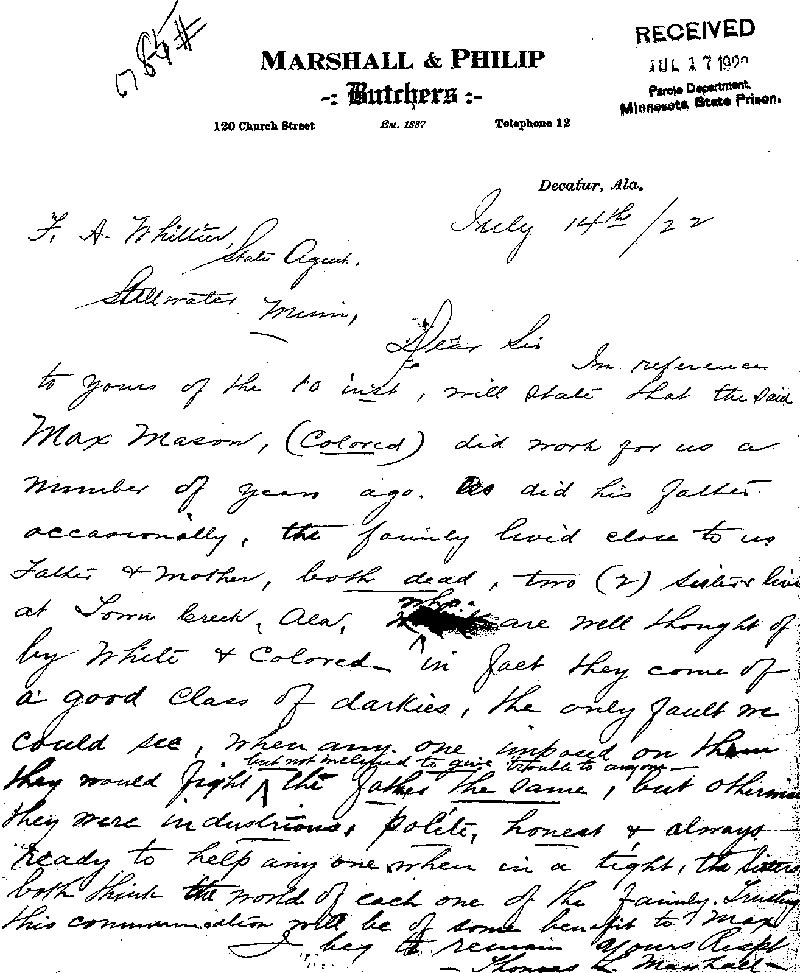 6785#
MARSHALL & PHILIP
-: Butchers :-
120 Church Street Est. 1887 Telephone 12
RECEIVED
JUL 17 1922
Parole Department,
Minnesota State Prison.
Decatur, Ala.
July 14th/22
F. A. Whittier,
State Agent.
Stillwater Minn,
Dear Sir
In reference
to yours of the 10 inst, will state that the said
Max Mason, (Colored) did work for us a
number of years ago. as did his father
occasionally, the family lived close to us
Father & Mother, both dead, two (2) Sisters live
at Town Creek, Ala, who are well thought of
by White & Colored - in fact they come of
a good class of darkies, the only fault we
could see, when any one imposed on them
they would fight but not inclined to give trouble to anyone - the father the same, but otherwise
they were industrious, polite, honest & always
ready to help any one when in a tight, the Sisters
both think the world of each one of the family. Trusting
this communication will be of some benefit to Max
I beg to remain yours Respt
- Thomas L. Marshall -